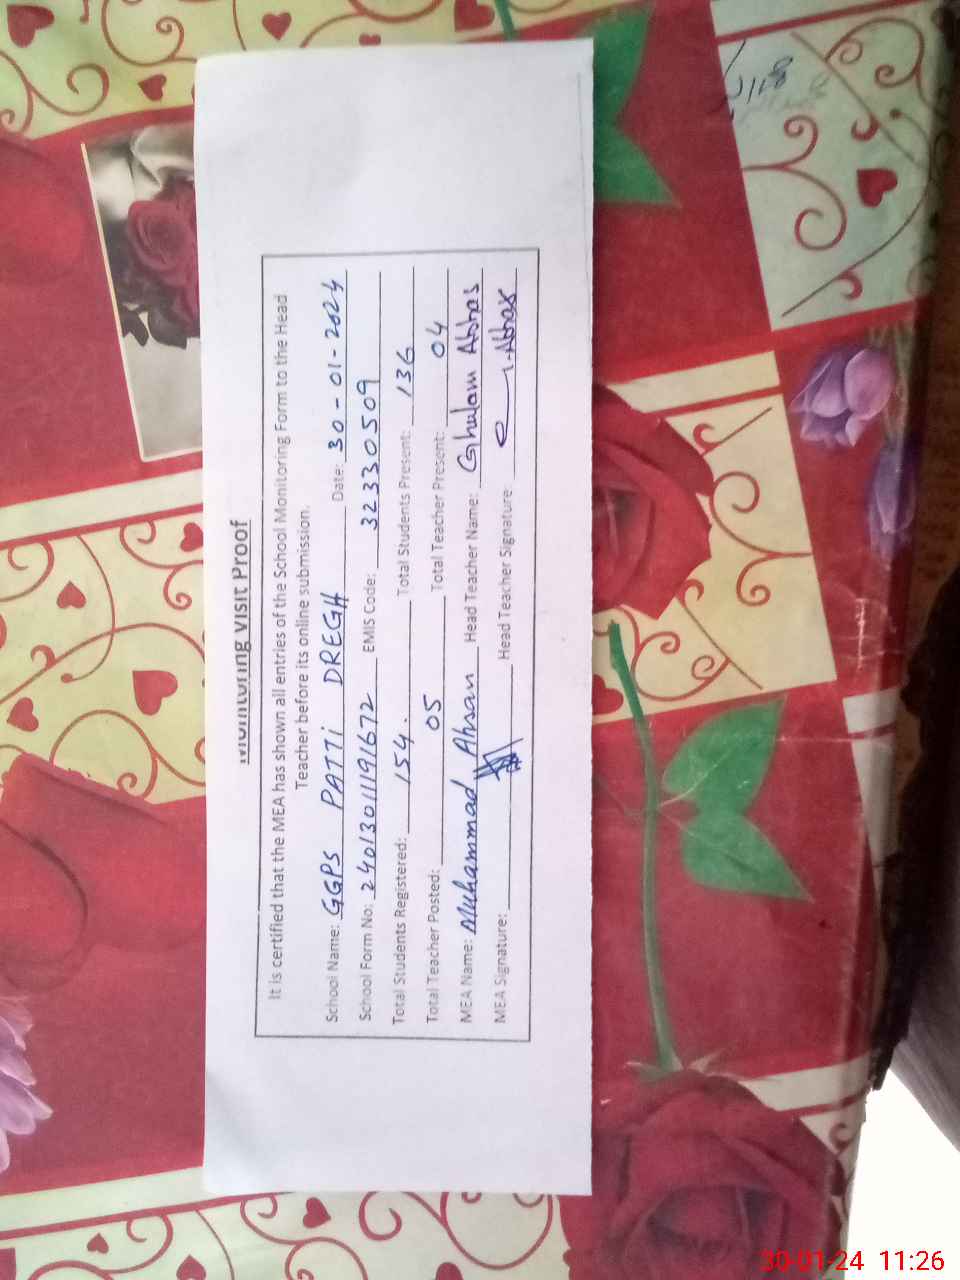 Monitoring Visit Proof
It is certified that the MEA has shown all entries of the School Monitoring Form to the Head
Teacher before its online submission.
School Name: GGPS PATI DREGH Date: 30-01-2024
School Form No: 2401301191672 EMIS Code: 32330509
Total Students Registered: 154. Total Students Present: 136
Total Teacher Posted: 05 Total Teacher Present: 04
MEA Name: Muhammad Ahsan Head Teacher Name: Ghulam Abbas
MEA Signature: Head Teacher Signature: Abbas
30-01-24 11:26